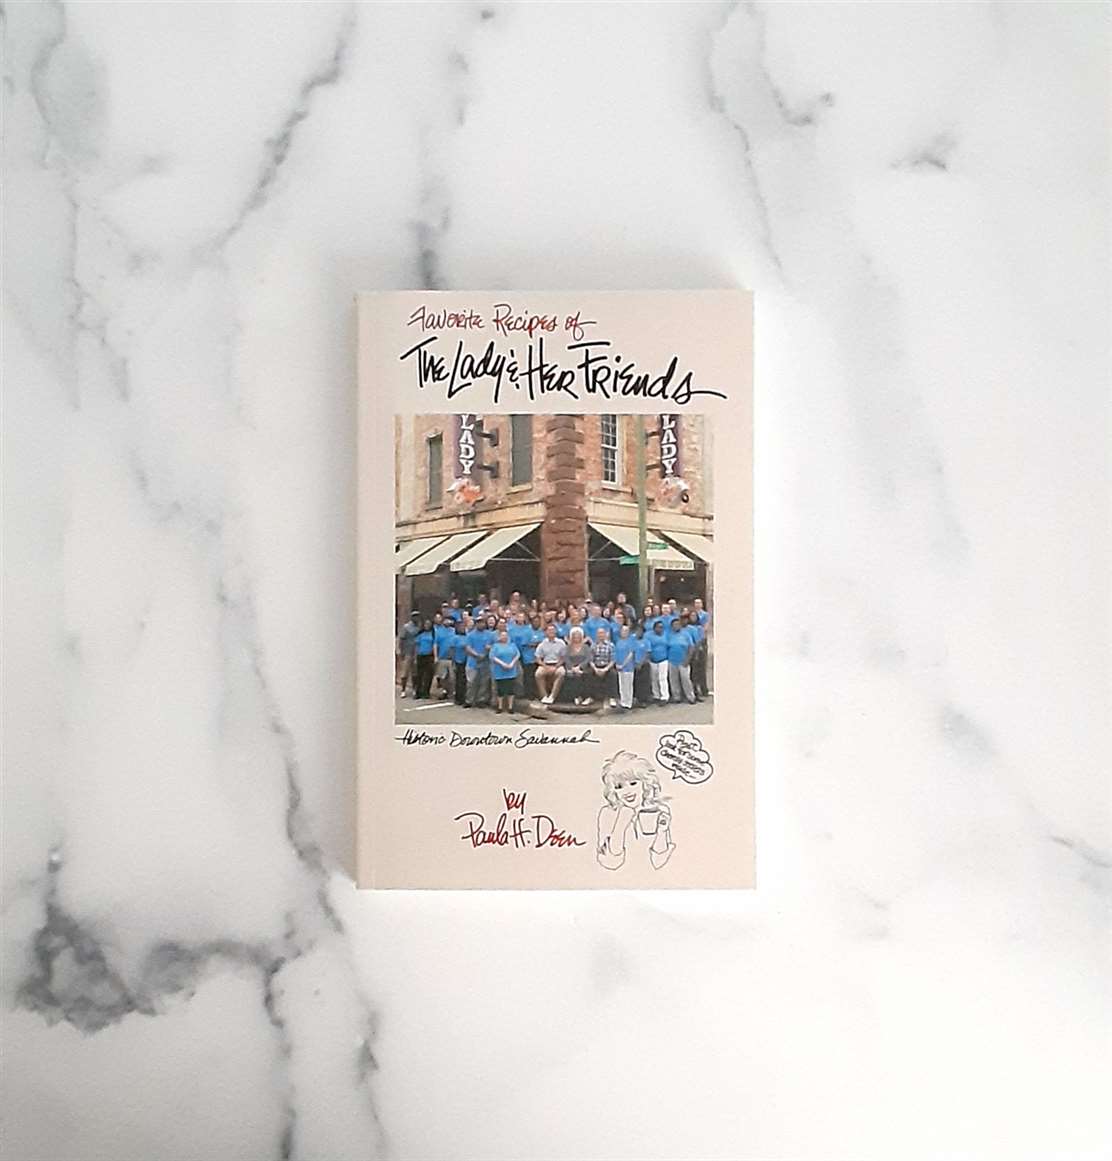 Favorite Recipes of
The Lady & Her Friends
LADY
LADY
Historic Downtown Savannah
Psst...
look for some
by
Paula H. Deen